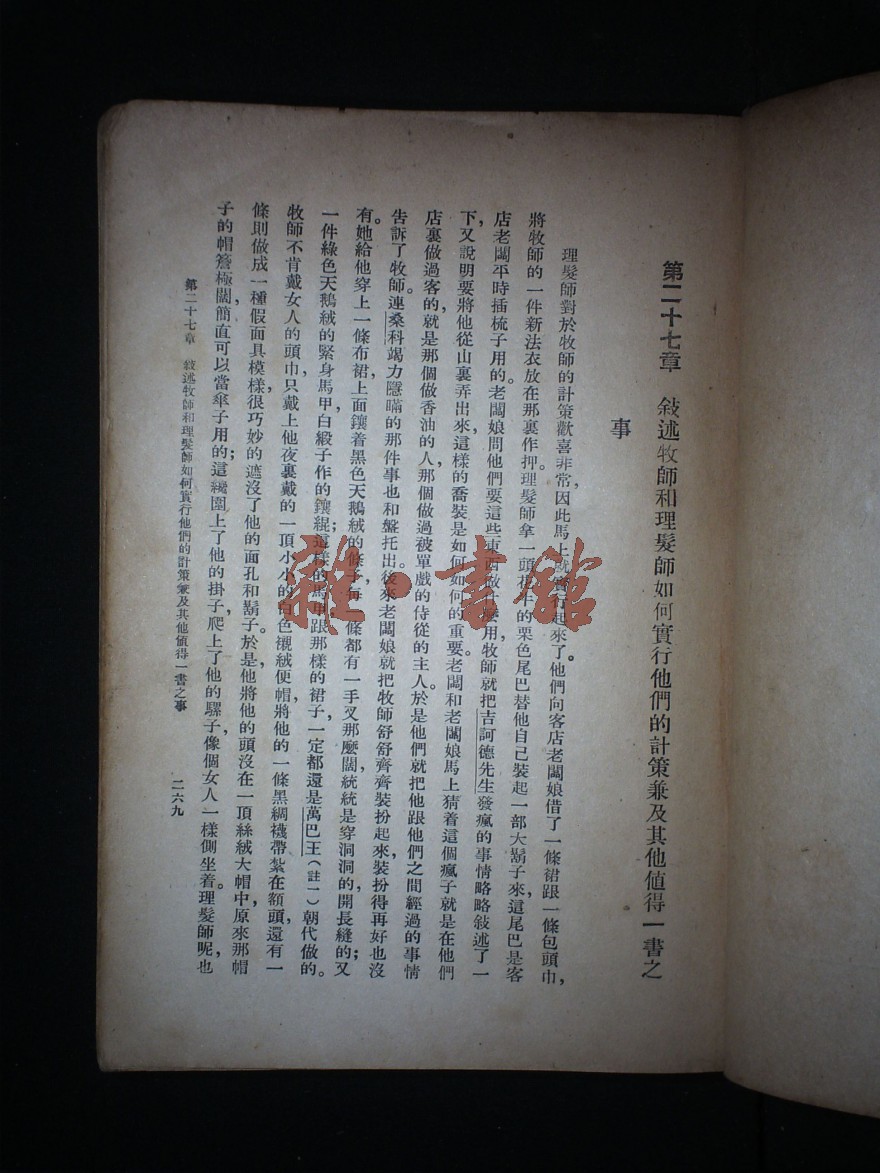 第二十七章　敍述牧師和理髮師如何實行他們的計策兼及其他値得一書之
事
理髮師對於牧師的計策歡喜非常，因此馬上就實行起來了。他們向客店老闆娘借了一條裙跟一條包頭巾，
將牧師的一件新法衣放在那裏作押。理髮師拿一頭花牛的栗色尾巴替他自己裝起一部大鬍子來，這尾巴是客
店老闆平時插梳子用的。老闆娘問他們要這些東西做什麼用，牧師就把吉訶德先生發瘋的事情略略敍述了一
下，又說明要將他從山裏弄出來，這樣的喬裝是如何如何的重要。老闆和老闆娘馬上猜着這個瘋子就是在他們
店裏做過客的，就是那個做香油的人，那個做過被單戲的侍從的主人。於是他們就把他跟他們之間經過的事情
告訴了牧師，連桑科竭力隱瞞的那件事也和盤托出。後來老闆娘就把牧師舒舒齊齊裝扮起來，裝扮得再好也沒
有。她給他穿上一條布裙，上面鑲着黑色天鵝絨的條子，每一條都有一手叉那麼闊，統統是穿洞洞的，開長縫的；又
一件綠色天鵝絨的緊身馬甲，白緞子作的鑲緄；這樣的馬甲跟那樣的裙子，一定都還是萬巴王（註一）朝代做的。
牧師不肯戴女人的頭巾，只戴上他夜裏戴的一頂小小的白色襯絨便帽，將他的一條黑綢襪帶紮在額頭，還有一
條則做成一種假面具模樣，很巧妙的遮沒了他的面孔和鬍子。於是他將他的頭沒在一頂絲絨大帽中，原來那帽
子的帽簷極闊，簡直可以當傘子用的；這纔圍上了他的掛子，爬上了他的騾子，像個女人一樣側坐着。理髮師呢，也
第二十七章　敍述牧師和理髮師如何實行他們的計策兼及其他値得一書之事
二六九
雜·書館